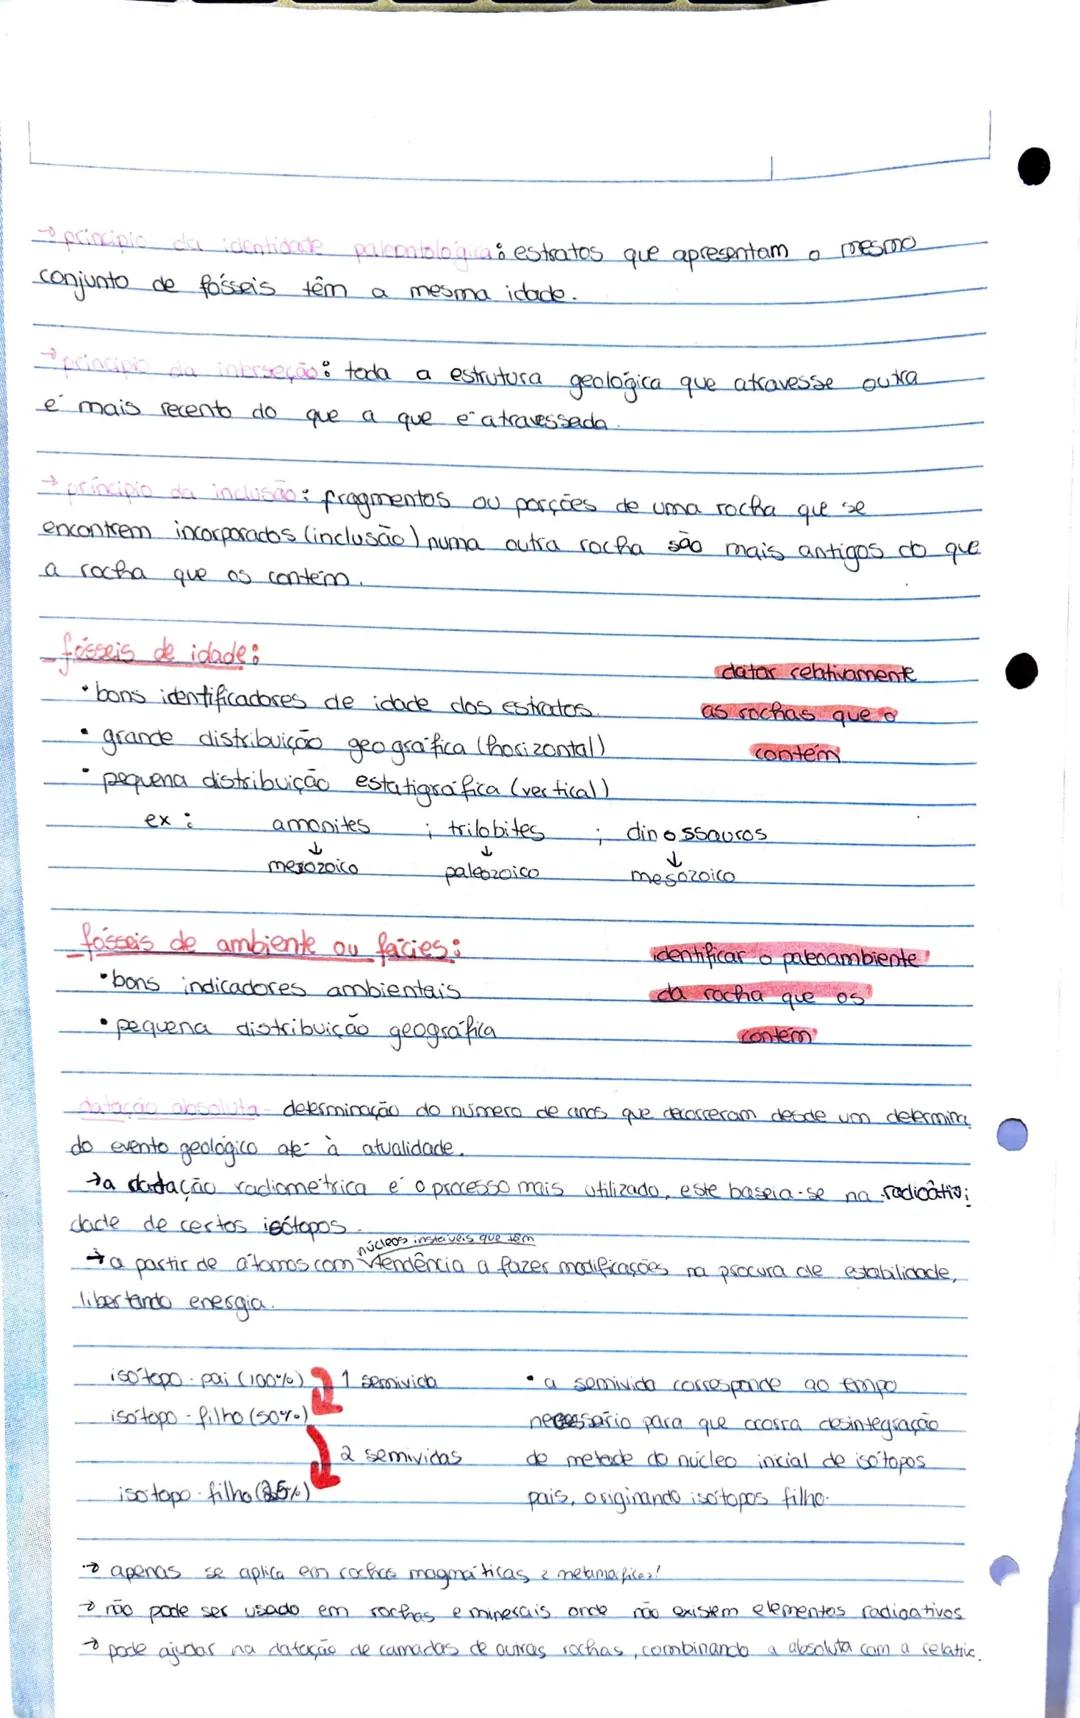 → princípio da identidade paleontológica: estratos que apresentam o mesmo
conjunto de fósseis têm a mesma idade.
→ princípio da interseção: toda a estrutura geológica que atravesse outra
é mais recente do que a que é atravessada.
→ princípio da inclusão: fragmentos ou porções de uma rocha que se
encontrem incorporados (inclusão) numa outra rocha são mais antigos do que
a rocha que os contém.
fósseis de idade:
datar relativamente
• bons identificadores de idade dos estratos.
as rochas que o
• grande distribuição geográfica (horizontal)
contém
• pequena distribuição estatigráfica (vertical)
ex: amonites ; trilobites ; dinossauros
↓ ↓ ↓
mesozoico paleozoico mesozoico
fósseis de ambiente ou fácies:
identificar o paleoambiente
• bons indicadores ambientais
da rocha que os
• pequena distribuição geográfica
contém
datação absoluta - determinação do número de anos que decorreram desde um determina
do evento geológico até à atualidade.
→ a datação radiométrica é o processo mais utilizado, este baseia-se na radioativi
dade de certos isótopos.
núcleos instáveis que têm
→ a partir de átomos com tendência a fazer modificações na procura de estabilidade,
libertando energia.
isótopo-pai (100%) 1 semivida
isótopo-filho (50%)
2 semividas
isótopo-filho (25%)
• a semivida corresponde ao tempo
necessário para que ocorra desintegração
de metade do núcleo inicial de isótopos
pais, originando isótopos filho.
→ apenas se aplica em rochas magmáticas e metamórficas!
→ não pode ser usado em rochas e minerais onde não existem elementos radioativos
→ pode ajudar na datação de camadas de outras rochas, combinando a absoluta com a relativ.